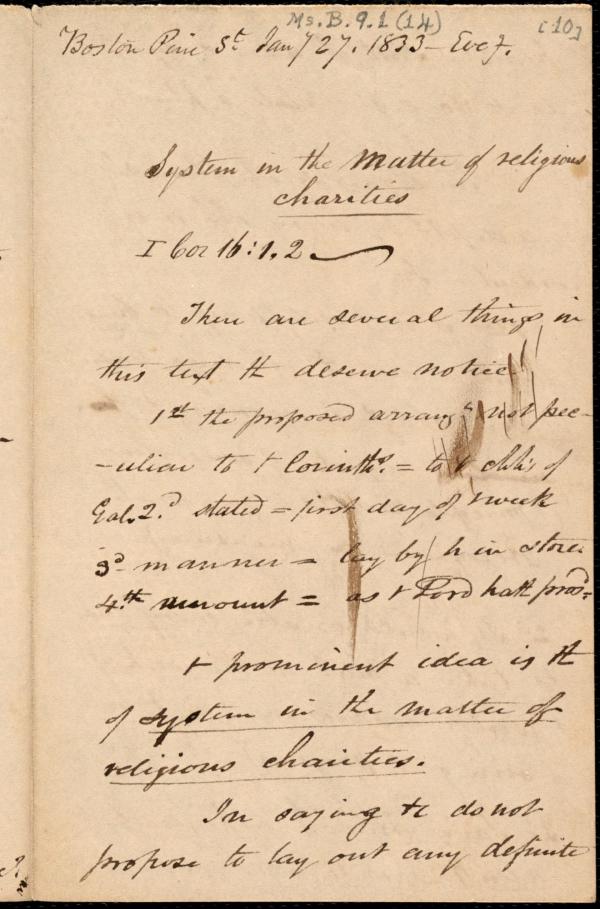 Ms. B. 9.1 (14) [10]
Boston Pine St Jany 27. 1833 — Eveg.
System in the matter of religious
charities
I Cor 16:1.2
There are several things in
this text tt deserve notice
1st the proposed arrangt not pec-
-uliar to t Corinths. = to t chhs of
Gal. 2d stated = first day of t week
3d manner = lay by h in store
4th amount = as t Lord hath prosd=
t prominent idea is tt
of system in the matter of
religious charities.
In saying tc do not
propose to lay out any definite